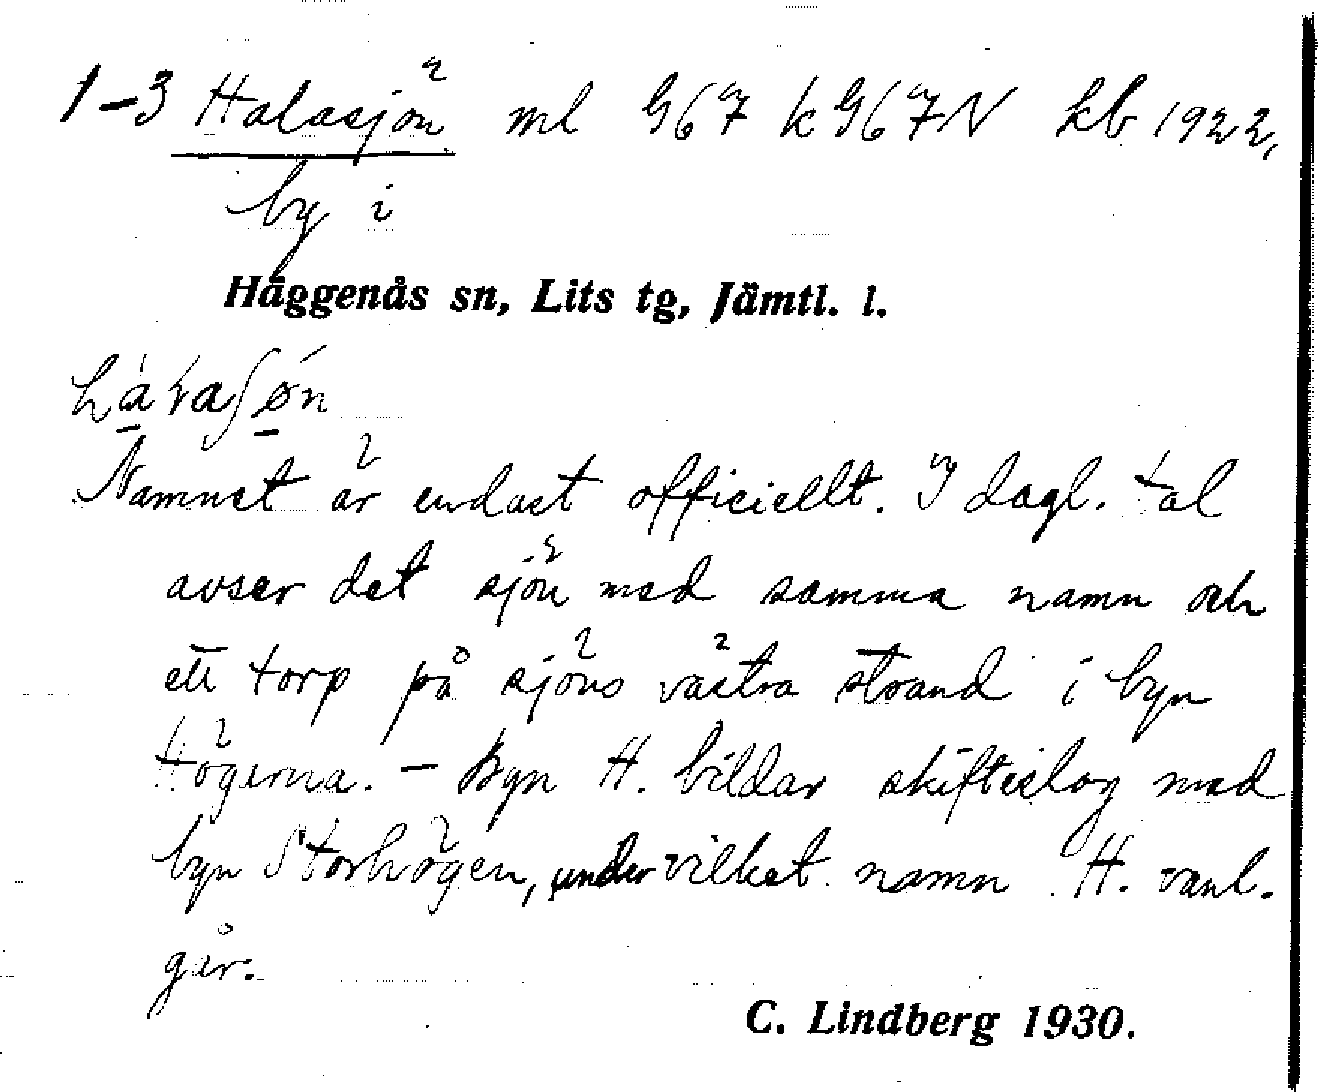 1-3 Halasjön ml G67 k G67N kb 1922,
by i
Häggenås sn, Lits tg, Jämtl. l.
Namnet är endast officiellt. I dagl. tal
avser det sjön med samma namn och
ett torp på sjöns västra strand i byn
Högerna. - Byn H. bildar skifteslag med
byn Storhögen, under vilket namn H. vanl.
går.
C. Lindberg 1930.